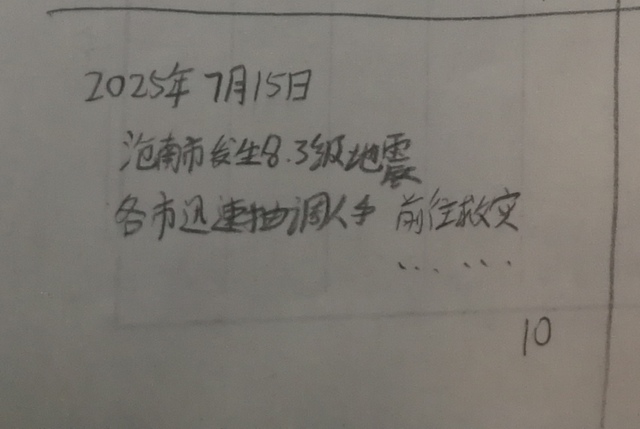 2025年7月15日
沧南市发生8.3级地震
各市迅速抽调人手 前往救灾
... ...
10